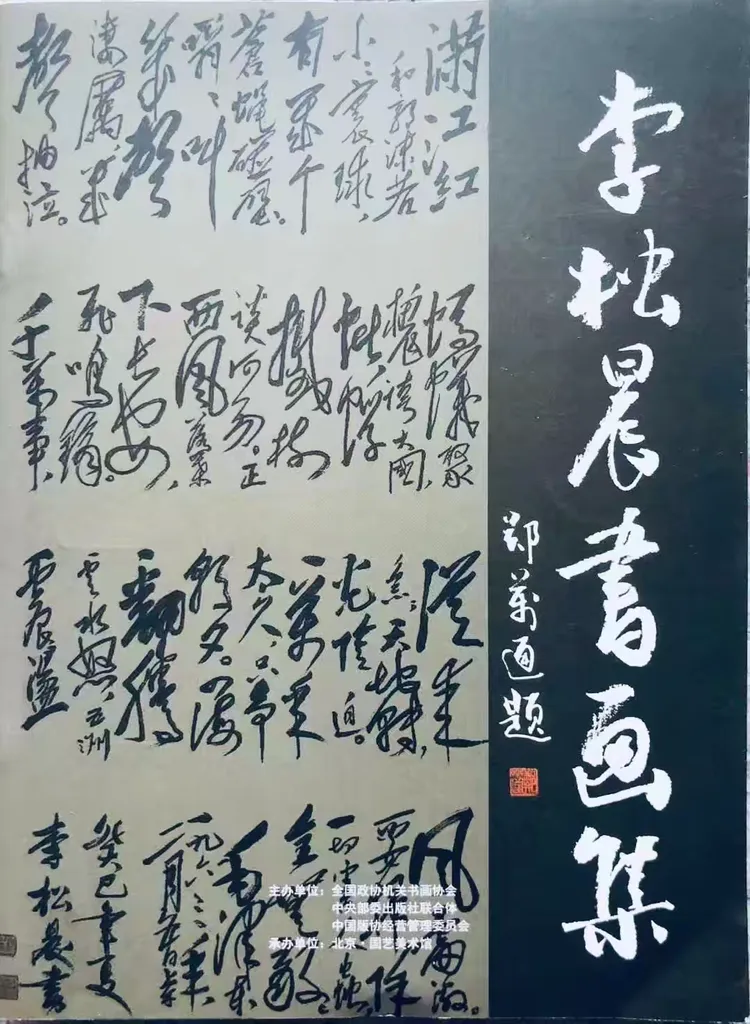 李松晨書画集
郑萬通题
满江红
和郭沫若
小小寰球、
有几个
蒼蝇碰壁。
嗡嗡叫
几聲
凄厲、几
聲抽泣。
螞蟻
夸大国,
蚍蜉
撼树
谈何易。正
西风落葉
下长安,
飛鸣镝。
千萬事,
從来
急;天地转,
光陰迫。
一萬年
太久,只争
朝夕。四海
翻腾
雲水怒,五洲
震荡
风雷激。
要扫除
一切害人虫
全无敌。
毛泽东
一九六三年
癸巳年夏
李松晨書
主办单位：全国政协机关书画协会
中央部委出版社联合体
中国版协经营管理委员会
承办单位：北京·国艺美术馆